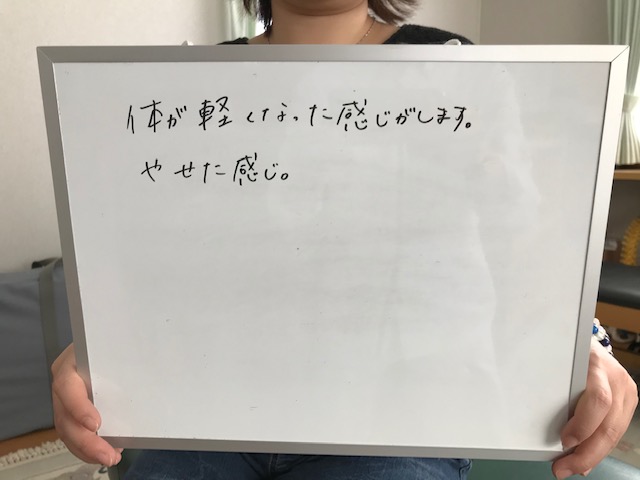 体が軽くなった感じがします。
やせた感じ。